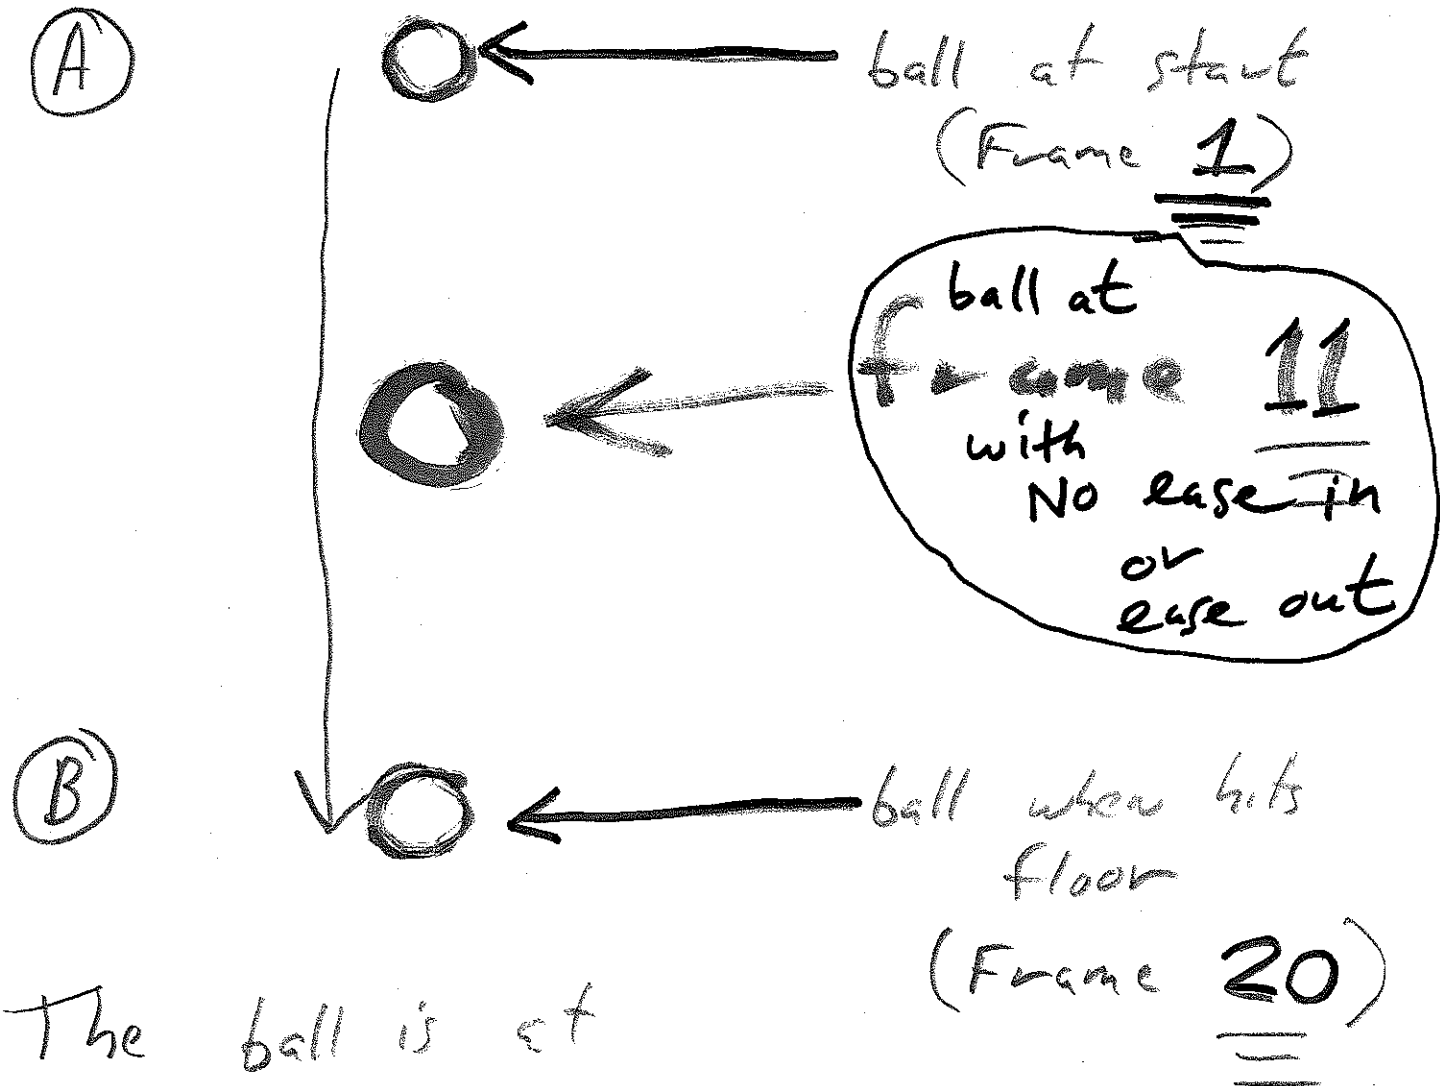 A
ball at start
(Frame 1)
ball at
frame 11
with
No ease in
or
ease out
B
ball when hits
floor
(Frame 20)
The ball is at